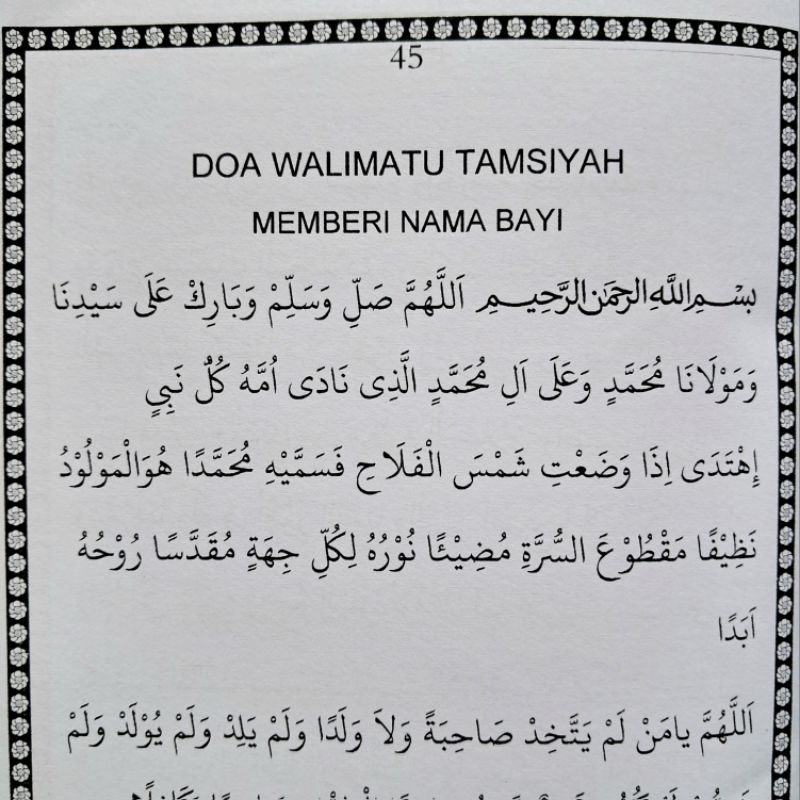 45
DOA WALIMATU TAMSIYAH
MEMBERI NAMA BAYI
بِسْمِ اللَّهِ الرَّحْمَنِ الرَّحِيمِ اَللَّهُمَّ صَلِّ وَسَلِّمْ وَبَارِكْ عَلَى سَيْدِنَا
وَمَوْلَانَا مُحَمَّدٍ وَعَلَى اَلِ مُحَمَّدٍ الَّذِى نَادَى اُمَّهُ كُلُّ نَبِيٍ
إِهْتَدَى اِذَا وَضَعْتِ شَمْسَ الْفَلَاحِ فَسَمَّيْهِ مُحَمَّدًا هُوَالْمَوْلُوْدُ
نَظِيْفًا مَقْطُوْعَ السُّرَّةِ مُضِيْئًا نُوْرُهُ لِكُلِّ جِهَةٍ مُقَدَّسًا رُوْحُهُ
اَبَدًا
اَللَّهُمَّ يامَنْ لَمْ يَتَّخِدْ صَاحِبَةً وَلاَ وَلَدًا وَلَمْ يَلِدْ وَلَمْ يُوْلَدْ وَلَمْ